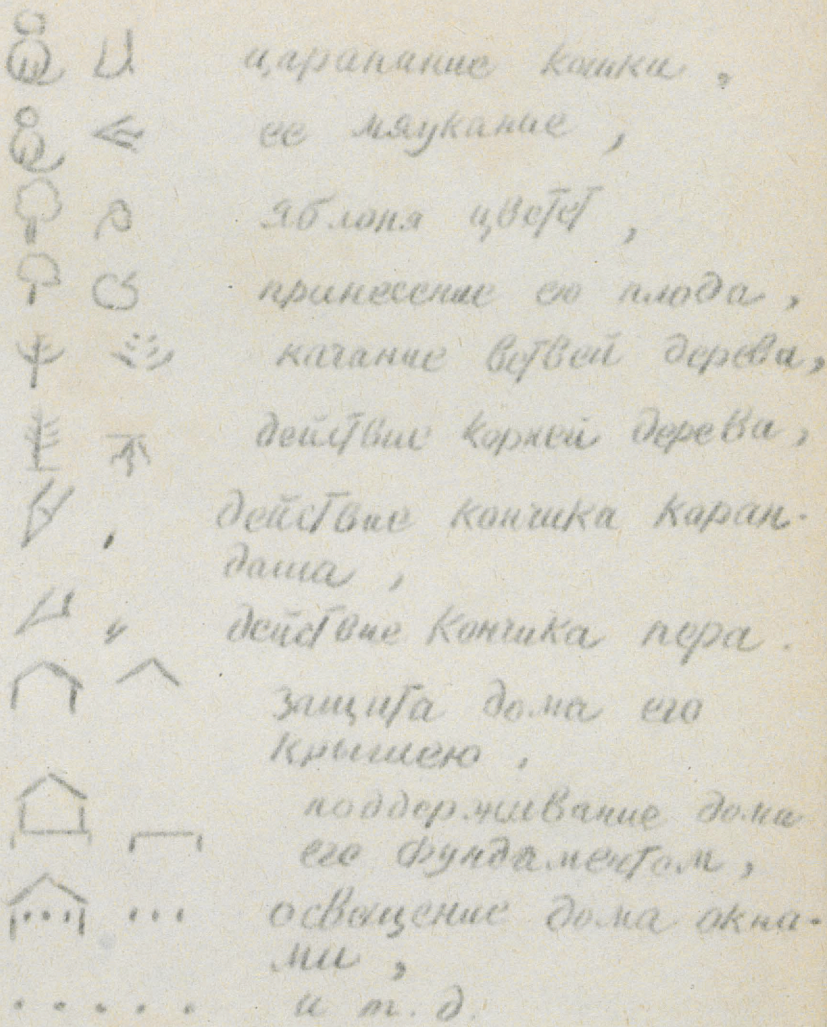 царапание кошки,
ее мяукание,
яблоня цветет,
принесение ею плода,
качание ветвей дерева,
действие корней дерева,
действие кончика каран-
даша,
действие кончика пера.
защита дома его
крышею,
поддерживание дома
его фундаментом,
освещение дома окна-
ми,
..... и т. д.